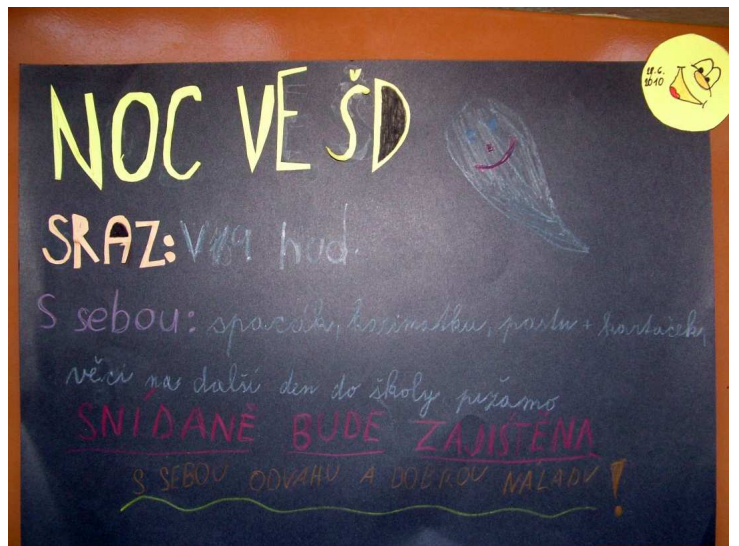 NOC VE ŠD
28.6.
2010
SRAZ: V hod.
S sebou: spacák, karimatku, pastu + kartáček,
věci na další den do školy, pyžamo
SNÍDANĚ BUDE ZAJIŠTĚNA
S SEBOU ODVAHU A DOBROU NÁLADU!